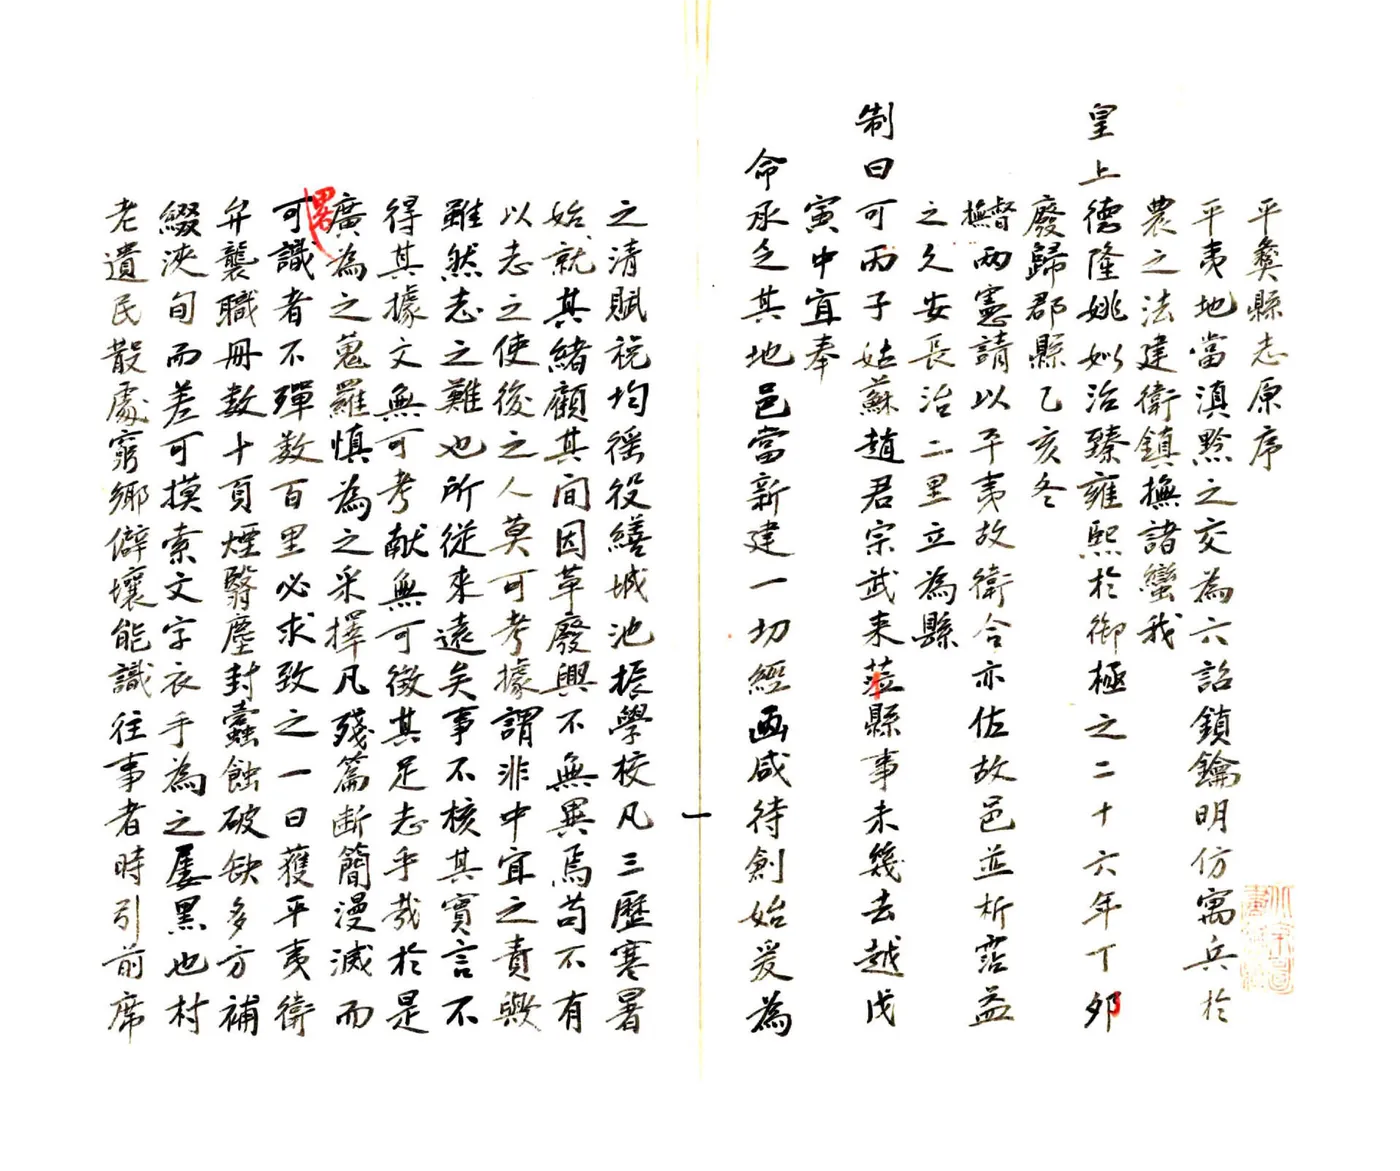 平彜縣志原序
平夷地當滇黔之交為六詔鎖鑰明仿寓兵於
農之法建衛鎮撫諸蠻我
皇上德隆姚姒治臻雍熙於御極之二十六年丁卯
廢歸郡縣乙亥冬
督撫兩憲請以平夷故衛合亦佐故邑並析霑益
之久安長治二里立為縣
制曰可丙子姑蘇趙君宗武来蒞縣事未幾去越戊
寅中宜奉
命承乏其地邑當新建一切經画咸待創始爰為
之清賦稅均徭役繕城池振學校凡三歷寒暑
始就其緒顧其间因革廢興不無異焉苟不有
以志之使後之人莫可考據謂非中宜之責歟
雖然志之難也所従來遠矣事不核其實言不
得其據文無可考献無可徴其足志乎哉於是
廣為之蒐羅慎為之采擇凡殘篇断簡漫滅而
畧可識者不殫数百里必求致之一日獲平夷衛
弁襲職冊数十頁煙翳塵封蠧蝕破缺多方補
綴浹旬而差可摸索文字衣手為之屡黑也村
老遺民散處窮鄉僻壤能識往事者時引前席
一